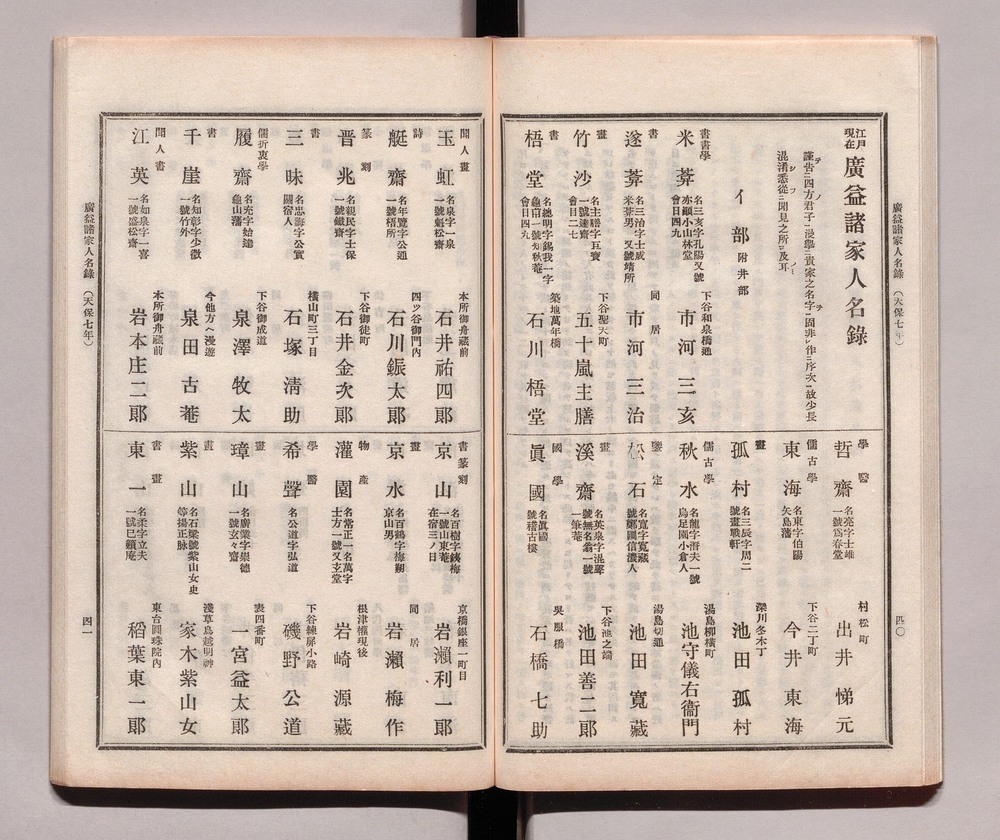 廣益諸家人名錄(天保七年)
江戸現在廣益諸家人名錄
謹告四方君子漫擧貴家之名字固非作序次故少長
混淆悉從聞見之所及耳
イ部附井部
書書學 米葊 名三亥字孔陽又號亦顚小山林堂會日四九 下谷和泉橋通 市河三亥
書 遂葊 名三治字士成米葊男又號靖所 同居 市河三治
畫 竹沙 名主膳字瓦寶一號連齋會日二七 下谷聖天町 五十嵐主膳
書 梧堂 名總明字錫我一字會日四九 築地萬年橋 石川梧堂
學醫 哲齋 名亮字士雄一號爲春堂 村松町 出井悌元
儒古學 東海 名東字伯陽矢島藩 下谷二丁町 今井東海
畫 孤村 名三辰字周二號畫戰軒 深川冬木丁 池田孤村
儒古學 秋水 名龍字濟夫一號鳥足園小倉人 湯島柳横町 池守儀右衞門
鑒定 松石 名寬字寬藏號鄰國信濃人 湯島切通 池田寬藏
畫 溪齋 名英泉字混聲號無名翁一號一筆菴 下谷池之端 池田善二郎
國學 眞國 名眞國號稽古樓 吳服橋 石橋七助
四〇
聞人畫 玉虹 名泉字一泉一號魁松齋 本所御舟藏前 石井祐四郎
詩 艇齋 名年寬字公通一號梧所 四ツ谷御門內 石川鋠太郎
篆刻 晋兆 名親民字士保一號鐵齋 下谷御徒町 石井金次郎
書 三昧 名忠壽字公實關宿人 橫山町三丁目 石塚淸助
儒折衷學 履齋 名充字始達龜山藩 下谷御成道 泉澤牧太
書 千崖 名知彰字少徽一號竹外 今他方ヘ漫遊 泉田古菴
聞人書 江英 名如泉字一喜一號盛松齋 本所御舟藏前 岩本庄二郎
書篆刻 京山 名百樹字鐵梅一號山東菴在宿三ノ日 京橋銀座一町目 岩瀨利一郎
畫 京水 名百鶴字梅嗣京山男 同居 岩瀨梅作
物產 灌園 名常正一名萬字士方一號又玄堂 根津權現後 岩崎源藏
學醫 希聲 名公道字弘道 下谷練屏小路 磯野公道
畫 璋山 名廣業字崇德一號玄々齋 表四番町 一宮益太郎
畫 紫山 名石梁號紫山女史等揚正脉 淺草鳥越明神 家木紫山女
書畫 東一 名柔字立夫一號巳顧庵 東台圓珠院內 稻葉東一郎
廣益諸家人名錄(天保七年)
四一